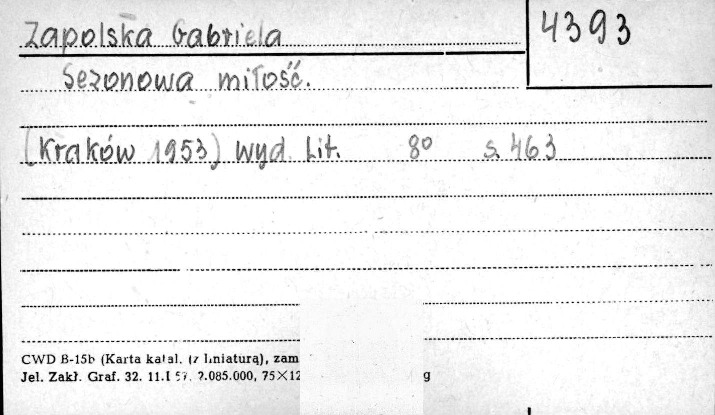 Zapolska Gabriela
4393
Sezonowa miłość.
[Kraków 1953] Wyd. Lit. 8° s. 463
CWD B-15b (Karta katal. (z liniaturą), zam
Jel. Zakł. Graf. 32. 11.I 57. 2.085.000, 75×12 g